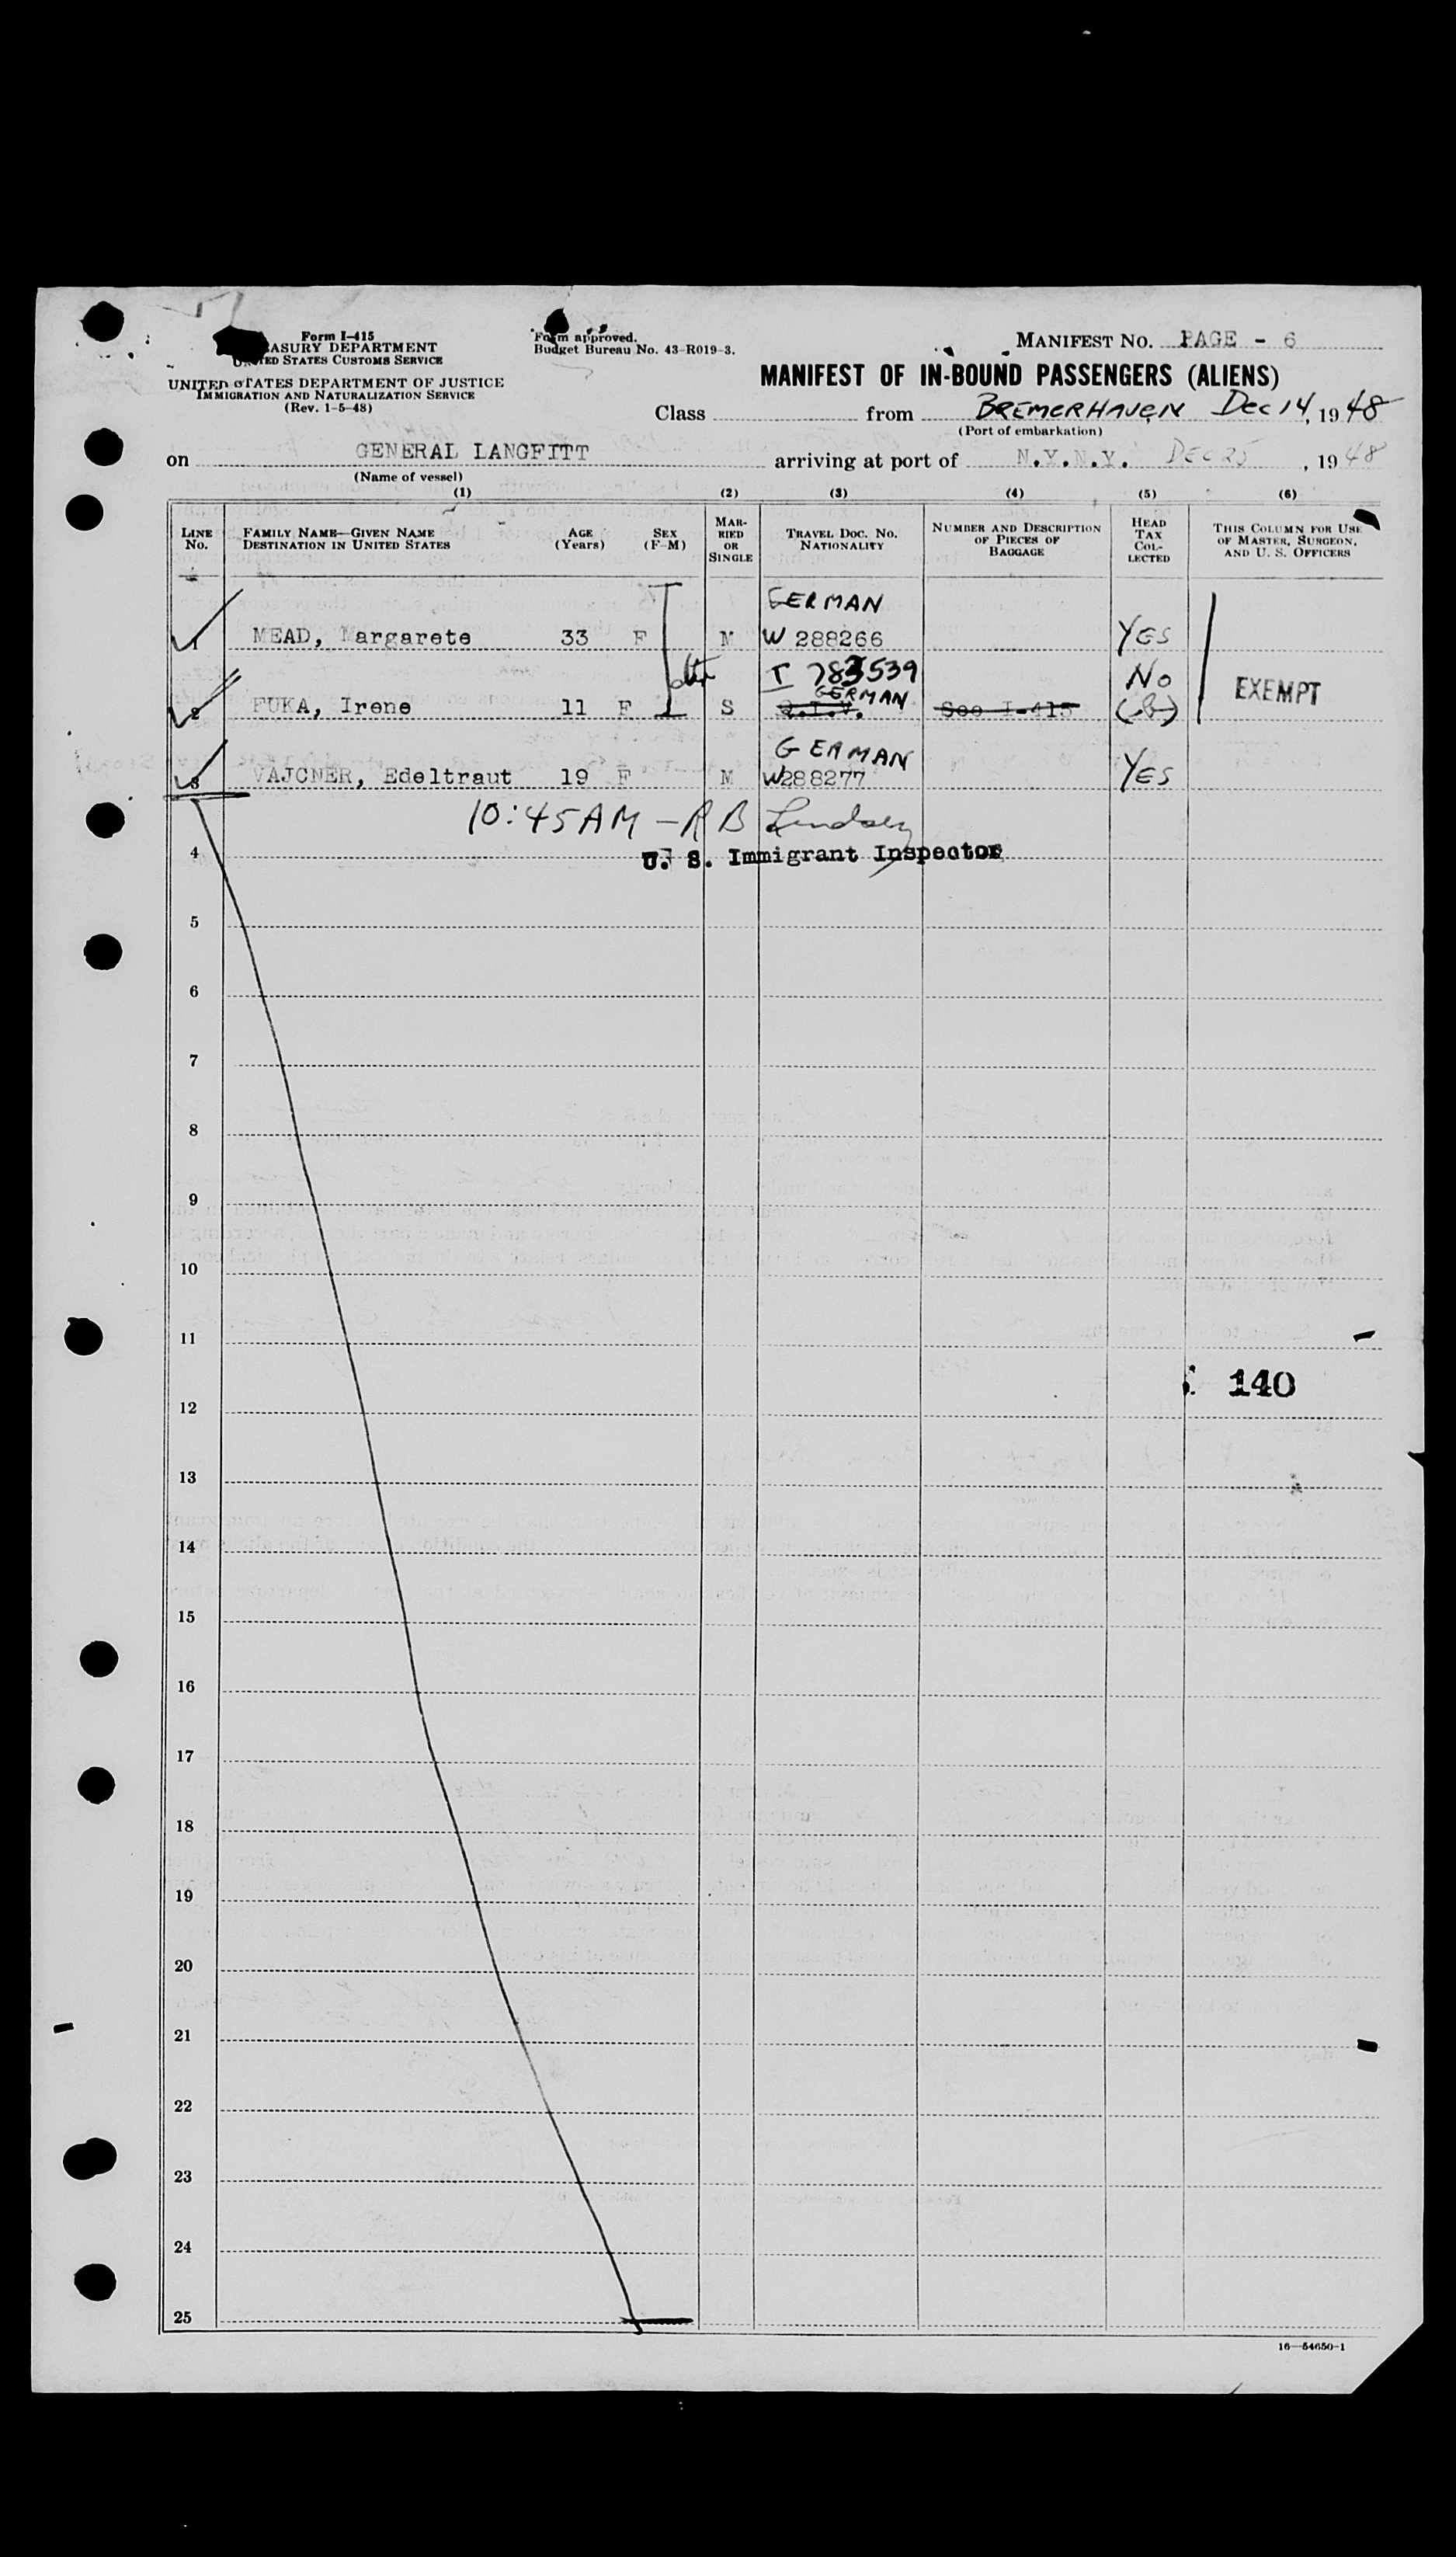 Form I-415
TREASURY DEPARTMENT
UNITED STATES CUSTOMS SERVICE
UNITED STATES DEPARTMENT OF JUSTICE
IMMIGRATION AND NATURALIZATION SERVICE
(Rev. 1-5-48)
Form approved.
Budget Bureau No. 43-R019-3.
MANIFEST NO. PAGE - 6
MANIFEST OF IN-BOUND PASSENGERS (ALIENS)
Class from BREMERHAVEN Dec 14, 1948
(Port of embarkation)
on GENERAL LANGFITT arriving at port of N.Y.N.Y. DEC 25, 1948
(Name of vessel)
(1) (2) (3) (4) (5) (6)
LINE No. FAMILY NAME—GIVEN NAME DESTINATION IN UNITED STATES AGE (Years) SEX (F-M) MARRIED OR SINGLE TRAVEL DOC. NO. NATIONALITY NUMBER AND DESCRIPTION OF PIECES OF BAGGAGE HEAD TAX COLLECTED THIS COLUMN FOR USE OF MASTER, SURGEON, AND U. S. OFFICERS
GERMAN
1 MEAD, Margarete 33 F M W 288266 YES
I 783539 No
GERMAN EXEMPT
2 FUKA, Irene 11 F S See I-415
GERMAN
3 VAJCNER, Edeltraut 19 F M W288277 YES
10:45AM - R B Lindsey
4 U. S. Immigrant Inspector
5
6
7
8
9
10
11
140
12
13
14
15
16
17
18
19
20
21
22
23
24
25
16—54650-1